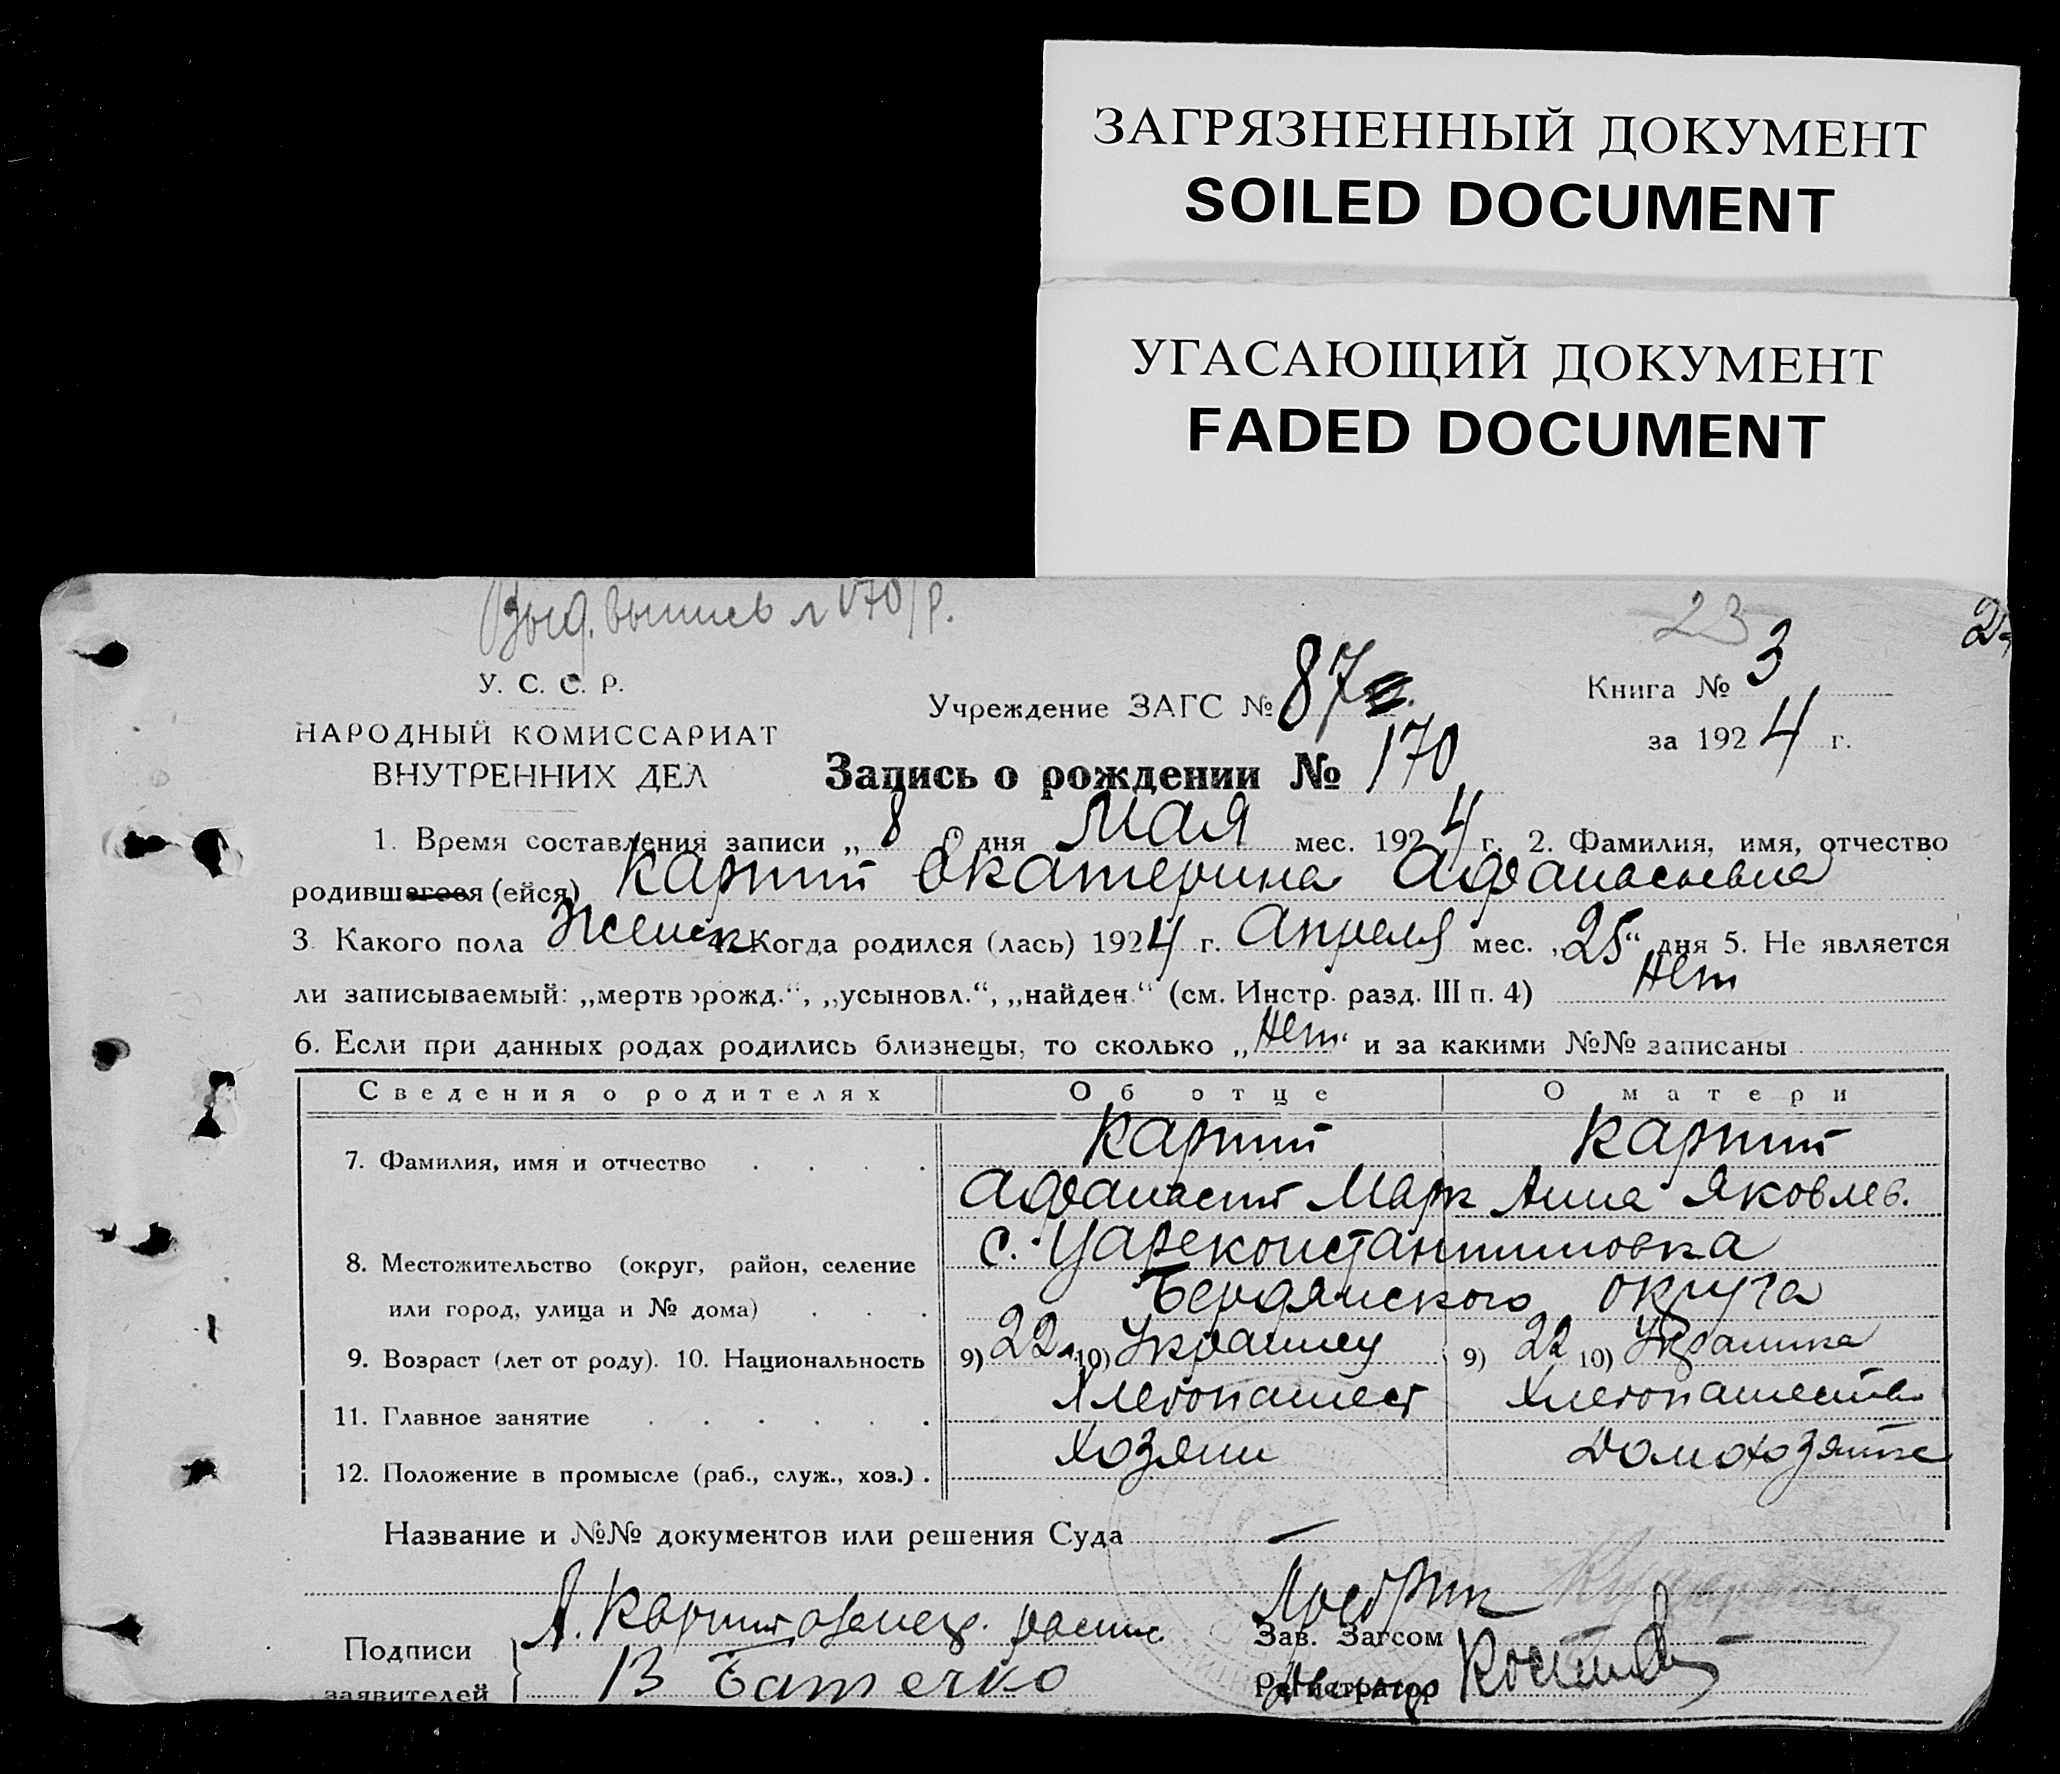 ЗАГРЯЗНЕННЫЙ ДОКУМЕНТ
SOILED DOCUMENT
УГАСАЮЩИЙ ДОКУМЕНТ
FADED DOCUMENT
Выд. выпись 170/р.
23
У. С. С. Р.
НАРОДНЫЙ КОМИССАРИАТ
ВНУТРЕННИХ ДЕЛ
Учреждение ЗАГС № 87
Книга № 3
за 1924 г.
Запись о рождении № 170
1. Время составления записи „8“ дня Мая мес. 1924 г. 2. Фамилия, имя, отчество
родившегося (ейся) Карпий Екатерина Афанасьевна
3. Какого пола Женск 4. Когда родился (лась) 1924 г. Апреля мес. „25“ дня 5. Не является
ли записываемый: „мертворожд.“, „усыновл.“, „найден.“ (см. Инстр. разд. III п. 4) Нет
6. Если при данных родах родились близнецы, то сколько „Нет“ и за какими №№ записаны
Сведения о родителях Об отце О матери
7. Фамилия, имя и отчество Карпий Карпий
Афанасий Марк Анна Яковлев.
8. Местожительство (округ, район, селение с. Цареконстантиновка
или город, улица и № дома) Бердянского округа
9. Возраст (лет от роду). 10. Национальность 9) 22 л. 10) Украинец 9) 22 10) Украинка
11. Главное занятие Хлебопашест Хлебопашество
12. Положение в промысле (раб., служ., хоз.). Хозяин Домохозяйка
Название и №№ документов или решения Суда —
Подписи
заявителей
А. Карпий
В Батечко
Зав. Загсом
Регистратор